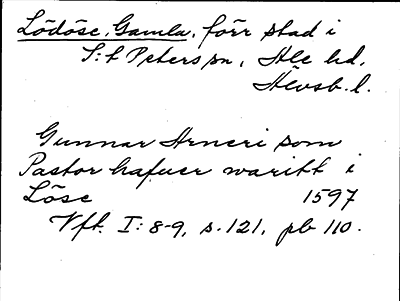 Lödöse, Gamla, förr stad i
S:t Peters sn, Ale hd,
Älvsb. l.
Gunnar Arneri som
Pastor hafuer waritt i
Löse 1597
Vft. I: 8-9, s. 121, pb 110.